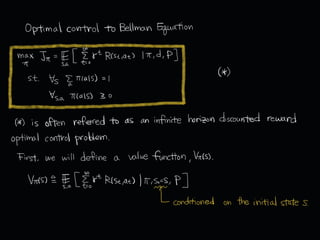 Optimal control to Bellman Equation
max_π J_π = E_{s,a} [ Σ_{t=0}^{∞} r^t R(s_t,a_t) | π, d, P ]
s.t. ∀s Σ_a π(a|s) = 1
(*)
∀s,a π(a|s) ≥ 0
(*) is often referred to as an infinite horizon discounted reward
optimal control problem.
First, we will define a value function, V_π(s).
V_π(s) ≜ E_{s,a} [ Σ_{t=0}^{∞} r^t R(s_t,a_t) | π, s_0=s, P ]
conditioned on the initial state s.